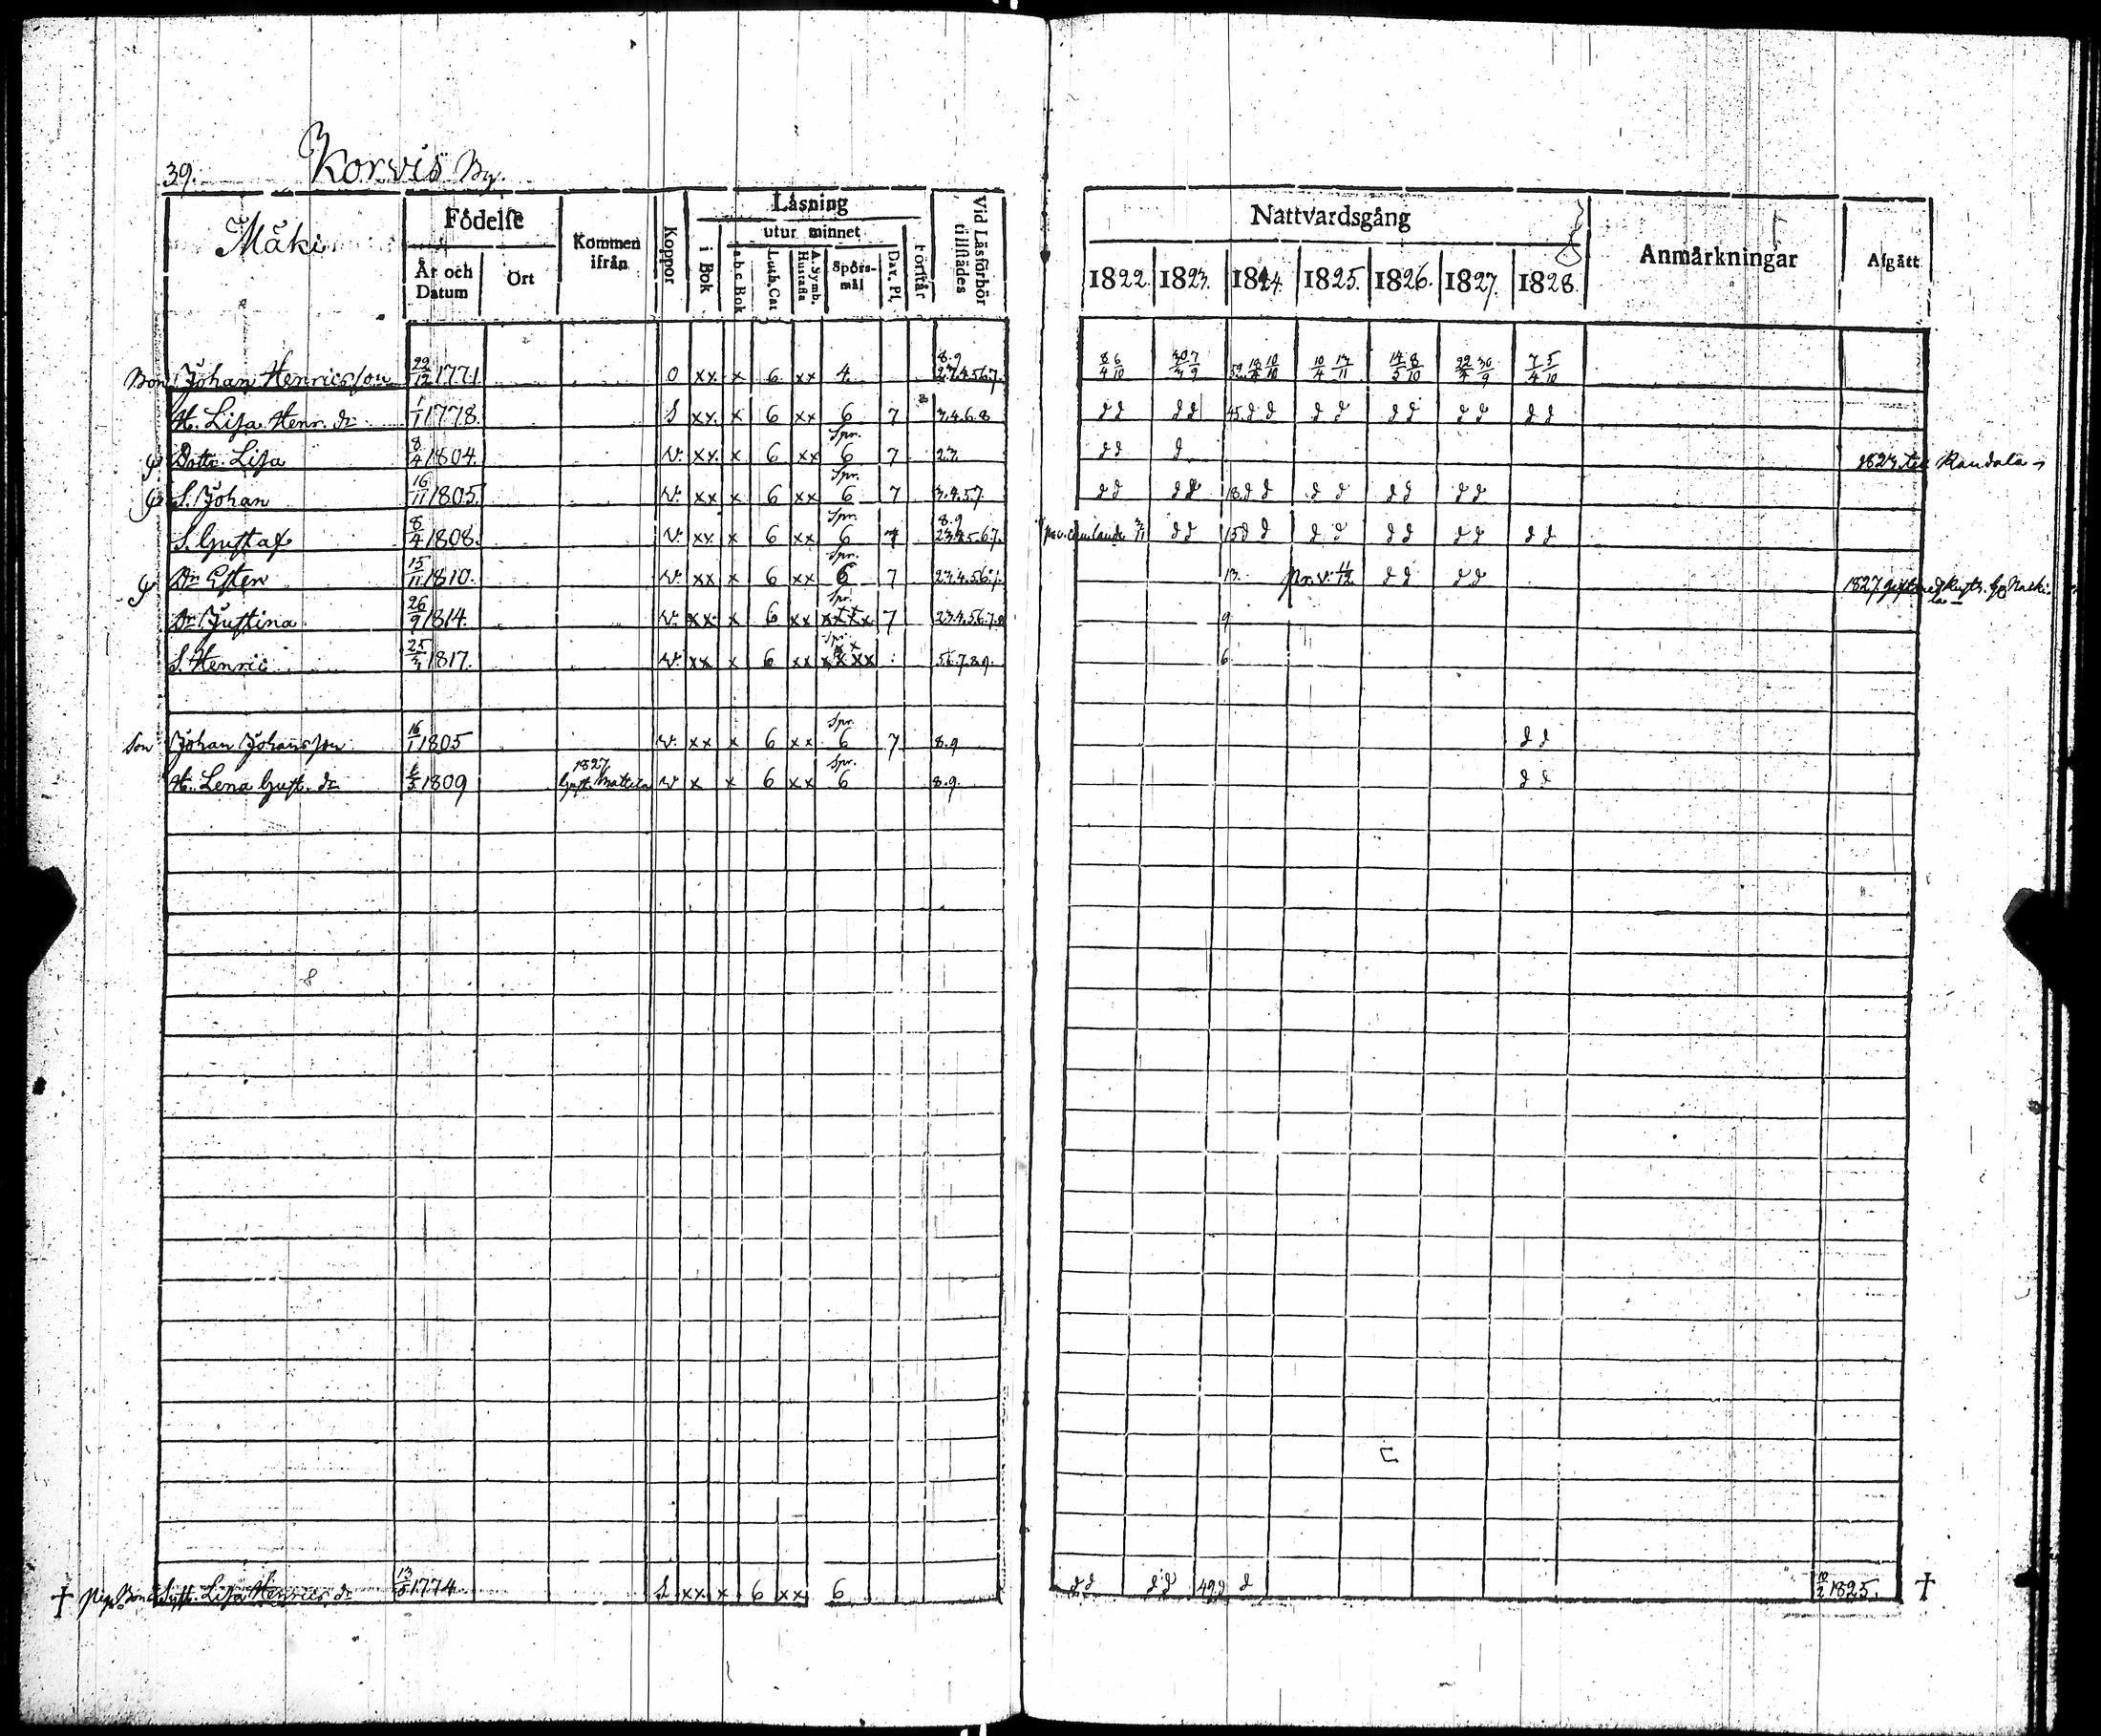 39. Korvis By.
Mäki
Födelse
Kommen ifrån
Koppor
Läsning
Vid Läsförhör tillstädes
År och Datum
Ort
i Bok
utur minnet
a.b.c. Bok
Luth. Cat
A. Symb. Hustafla
Spörsmål
Dav. Ps.
Förstår
Nattvardsgång
Anmärkningar
Afgått
1822. 1823. 1824. 1825. 1826. 1827. 1828.
Bon Johan Henricsson 22/12 1771. 0 xx. x 6 xx 4. 8.9 2.3.4.5.6.7. 8/4 6/10 30/3 7/9 52. 18/4 10/10 10/4 13/11 14/5 8/10 22/4 30/9 7/4 5/10
H. Lisa Henr. dr 1/1 1778. S xx. x 6 xx 6 7 3.4.6.8 d d d d 45. d d d d d d d d d d
Dottr. Lisa 8/4 1804. v. xx. x 6 xx Spr. 6 7 2.3. d d d 1823 till Raudala
S. Johan 16/11 1805. v. xx x 6 xx Spr. 6 7 3.4.5.7. d d d d 18. d d d d d d d d
S. Gustaf 8/4 1808. v. xx x 6 xx Spr. 6 7 8.9 2.3.4.5.6.7. d d 15 d d d d d d d d d d
Dr Ester 15/11 1810. v. xx x 6 xx Spr. 6 7 2.3.4.5.6.7. 13. pr. v. 11/12 d d d d 1827 gift
Dr Justina 26/9 1814. v. xx. x 6 xx Spr. xxxx 7 2.3.4.5.6.7.8 9
S. Henric 25/3 1817. v. xx x 6 xx Spr. xxxx 5.6.7.8.9. 6
Son Johan Johansson 16/1 1805 v. xx x 6 xx Spr. 6 7 8.9 d d
H. Lena Gust. dr 1809 1827 Gust. Mattila v x x 6 xx Spr. 6 8.9. d d
† Syst. Lisa Henrics dr 13/5 1774 S. xx. x 6 xx 6 d d d d 49. d d 10/2 1825. †